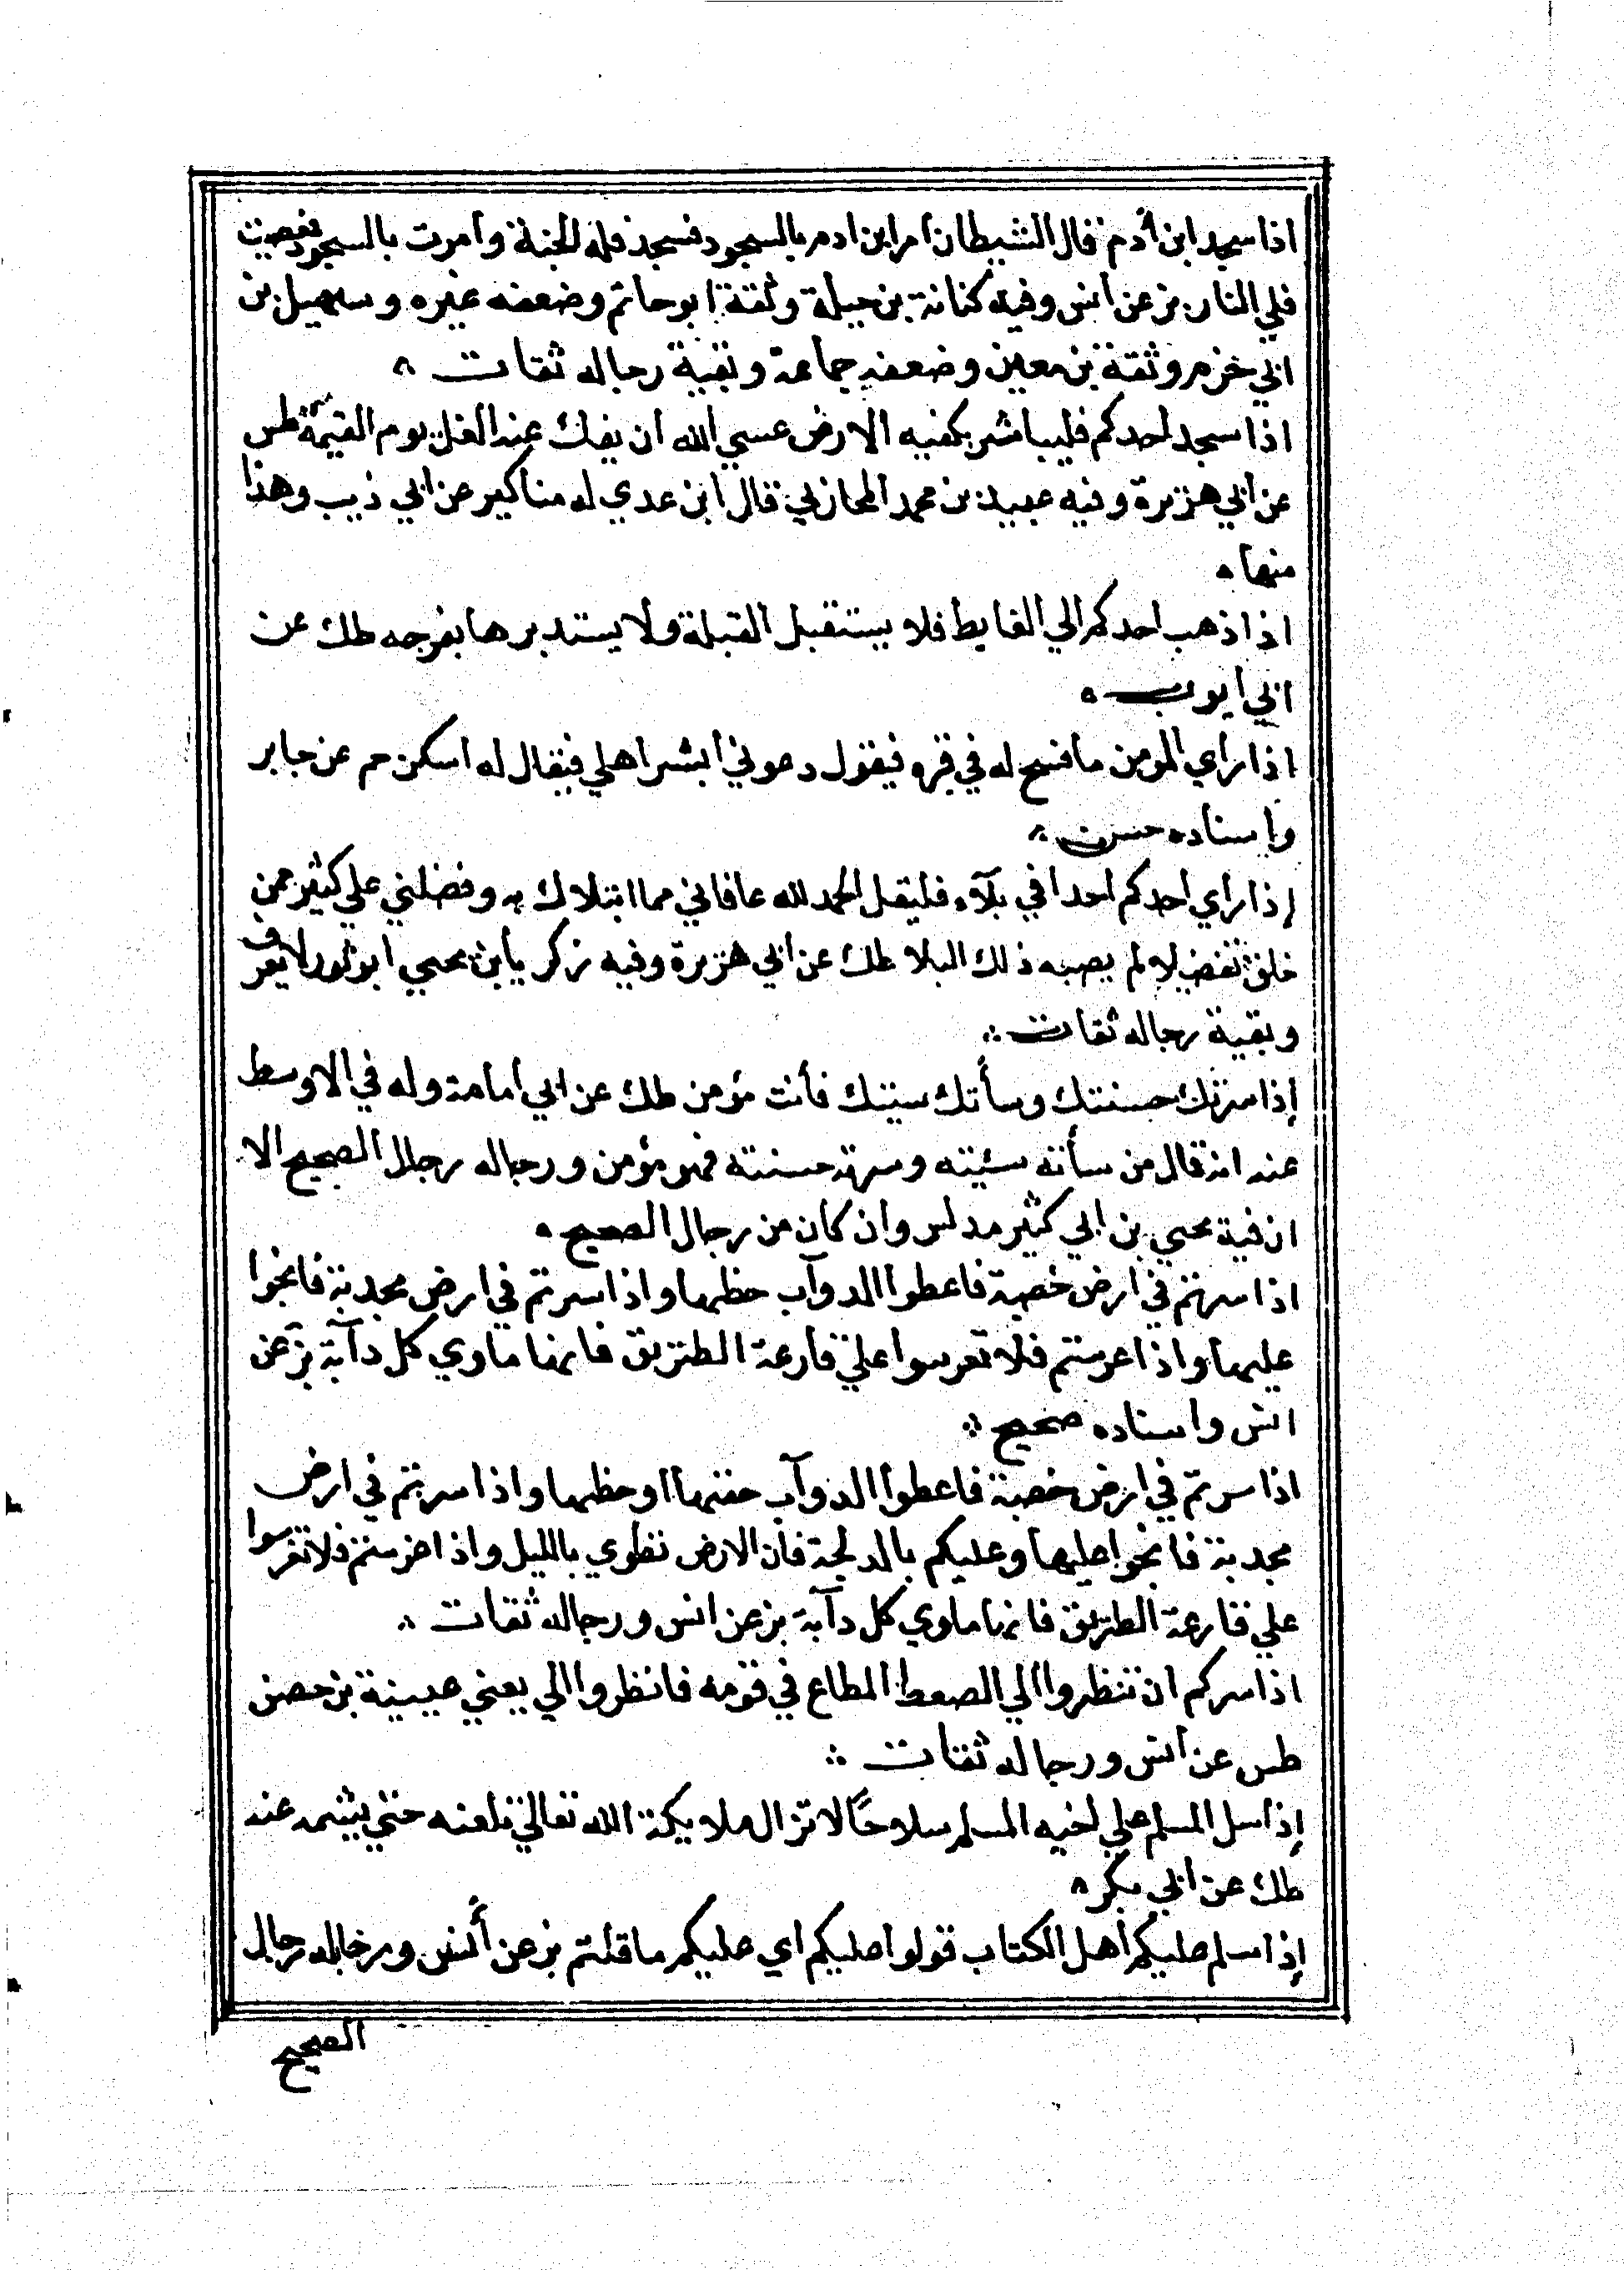 اذا سجد ابن أدم قال الشيطان امر ابن ادم بالسجود فسجد فله الجنة وأمرت بالسجود فعصيت
فلي النار بز عن انس وفيه كنانة بن جبلة وثقة ابو حاتم وضعفه غيره وسهيل بن
ابي حزم وثقة بن معين وضعفه جماعة وبقية رجاله ثقات
اذا سجد احدكم فليباشر بكفيه الارض عسي الله ان يفك عنه الغل يوم القيمة طس
عن ابي هريرة وفيه عبيد بن محمد المحاربي قال ابن عدي له مناكير عن ابي ذيب وهذا
منها
اذا ذهب احدكم الي الغايط فلا يستقبل القبلة ولا يستدبرها بفرجه طك عن
ابي أيوب
اذا راي المومن ما فسح له في قبره فيقول دعوني أبشر اهلي فيقال له اسكن حم عن جابر
وإسناده حسن
إذا راي احدكم احدا في بلآء فليقل الحمد لله عافاني مما ابتلاك به وفضلني علي كثير ممن
خلق تفضيلا لم يصبه ذلك البلا طك عن ابي هريرة وفيه زكريا بن يحيي ابو ثور لا يعرف
وبقية رجاله ثقات
إذا سرتك حسنتك وسأتك سيتك فأنت مؤمن طك عن ابي أمامة وله في الاوسط
عنه انه قال من سأته سئيته وسرته حسنته فهو مؤمن ورجاله رجال الصحيح الا
ان فية يحيي بن ابي كثير مدلس وان كان من رجال الصحيح
اذا سرتم في ارض خصبة فاعطوا الدوآب حظها واذا سرتم في ارض مجدبة فانجوا
عليها واذا عرستم فلا تعرسوا علي قارعة الطريق فانها ماوي كل دآبة بز عن
انس واسناده صحيح
اذا سرتم في ارض خصبة فاعطوا الدوآب حقها او حظها واذا سرتم في ارض
مجدبة فانجوا عليها وعليكم بالدلجة فان الارض تطوي بالليل واذا عرستم فلا تعرسوا
علي قارعة الطريق فانها ماوي كل دآبة بز عن انس ورجاله ثقات
اذا سركم ان تنظروا الي الصعط المطاع في قومه فانظروا الي يعني عيينة بن حصن
طس عن أنس ورجاله ثقات
إذا سل المسلم علي اخيه المسلم سلاحًا لا تزال ملايكة الله تعالي تلعنه حتي يشمه عنه
طك عن ابي بكره
إذا سلم عليكم أهل الكتاب قولوا عليكم اي عليكم ما قلتم بز عن أنس ورجاله رجال
الصحيح